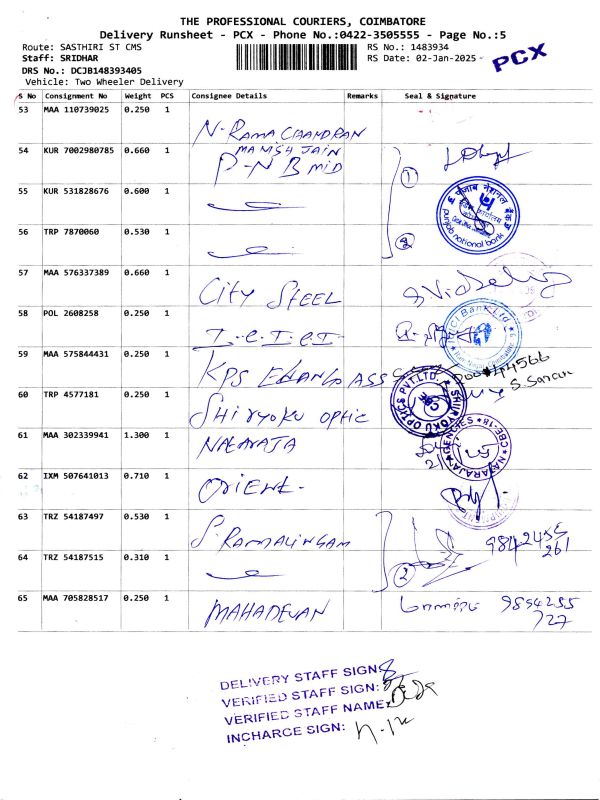 THE PROFESSIONAL COURIERS, COIMBATORE
Delivery Runsheet - PCX - Phone No.:0422-3505555 - Page No.:5
Route: SASTHIRI ST CMS
RS No.: 1483934
Staff: SRIDHAR
RS Date: 02-Jan-2025
PCX
DRS No.: DCJB148393405
Vehicle: Two Wheeler Delivery
S No Consignment No Weight PCS Consignee Details Remarks Seal & Signature
53 MAA 110739025 0.250 1 N. RAMA CHANDRAN
54 KUR 7002980785 0.660 1 MANISH JAIN
P-N B MID
55 KUR 531828676 0.600 1
①
56 TRP 7870060 0.530 1
②
पंजाब नैशनल बैंक
punjab national bank
57 MAA 576337389 0.660 1 CITY STEEL
58 POL 2608258 0.250 1 I.C.I.C.I
ICICI Bank Ltd
59 MAA 575844431 0.250 1 KPS ELANGO ASS
44566
60 TRP 4577181 0.250 1 SHIRYOKU OPTIC
SHIRYOKU OPTICS PVT.LTD.
CBE
61 MAA 302339941 1.300 1 NATARAJA
NATARAJA AGENCIES CBE-18
62 IXM 507641013 0.710 1 ORIENT-
63 TRZ 54187497 0.530 1 S. RAMALINGAM
9842455
261
64 TRZ 54187515 0.310 1
②
65 MAA 705828517 0.250 1 MAHADEVAN
9894255
727
DELIVERY STAFF SIGN:
VERIFIED STAFF SIGN:
VERIFIED STAFF NAME:
INCHARGE SIGN: